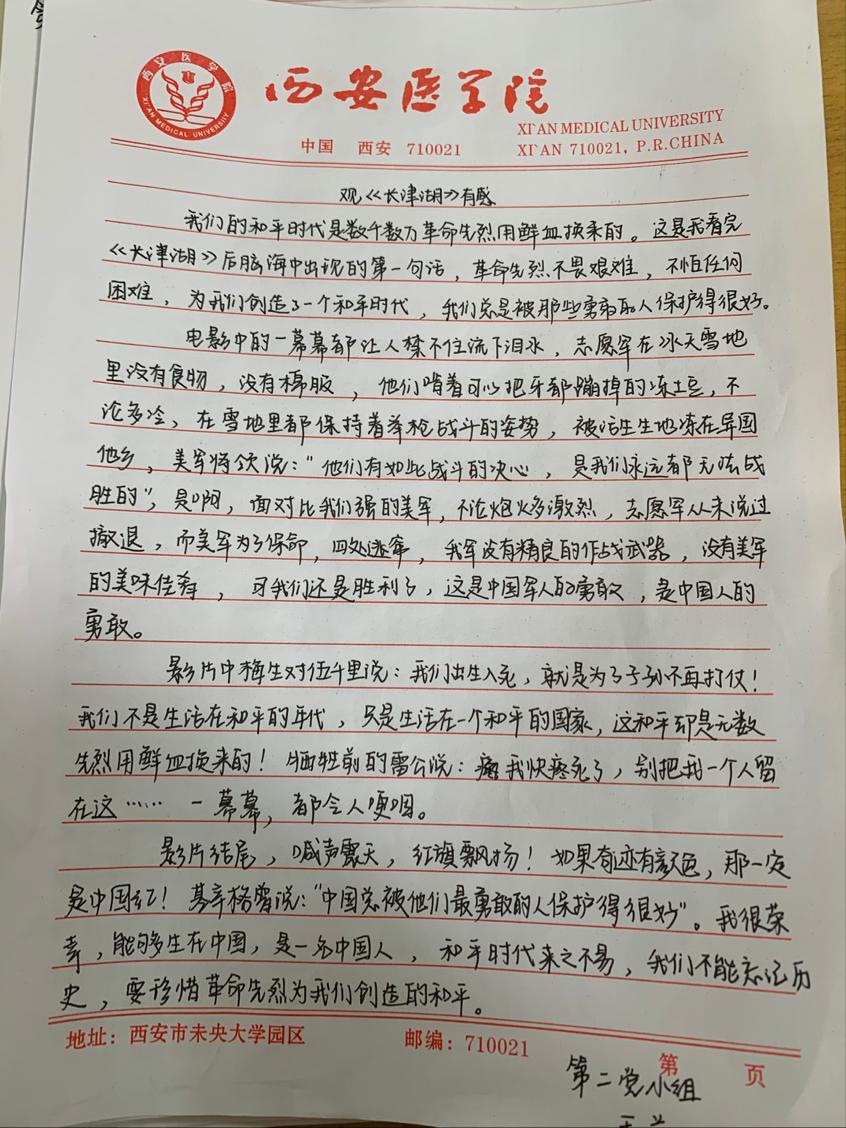 西安医学院
XI'AN MEDICAL UNIVERSITY
西安医学院
XI'AN MEDICAL UNIVERSITY
中国 西安 710021
XI'AN 710021, P.R.CHINA
观《长津湖》有感
我们的和平时代是数千数万革命先烈用鲜血换来的。这是我看完
《长津湖》后脑海中出现的第一句话，革命先烈不畏艰难，不怕任何
困难，为我们创造了一个和平时代，我们总是被那些勇敢的人保护得很好。
电影中的一幕幕都让人禁不住流下泪水，志愿军在冰天雪地
里没有食物，没有棉服，他们啃着可以把牙都蹦掉的冻土豆，不
论多冷，在雪地里都保持着举枪战斗的姿势，被活生生地冻在异国
他乡，美军将领说："他们有如此战斗的决心，是我们永远都无法战
胜的"，是啊，面对比我们强的美军，不论炮火多激烈，志愿军从未说过
撤退，而美军为了保命，四处逃窜，我军没有精良的作战武器，没有美军
的美味佳肴，可我们还是胜利了，这是中国军人的勇敢，是中国人的
勇敢。
影片中梅生对伍千里说：我们出生入死，就是为了子孙不再打仗！
我们不是生活在和平的年代，只是生活在一个和平的国家，这和平却是无数
先烈用鲜血换来的！牺牲前的雷公说：我快疼死了，别把我一个人留
在这…… 一幕幕，都令人哽咽。
影片结尾，喊声震天，红旗飘扬！如果奇迹有颜色，那一定
是中国红！基辛格曾说："中国总被他们最勇敢的人保护得很好"。我很荣
幸，能够多生在中国，是一名中国人，和平时代来之不易，我们不能忘记历
史，要珍惜革命先烈为我们创造的和平。
地址：西安市未央大学园区
邮编：710021
第 页
第二党小组